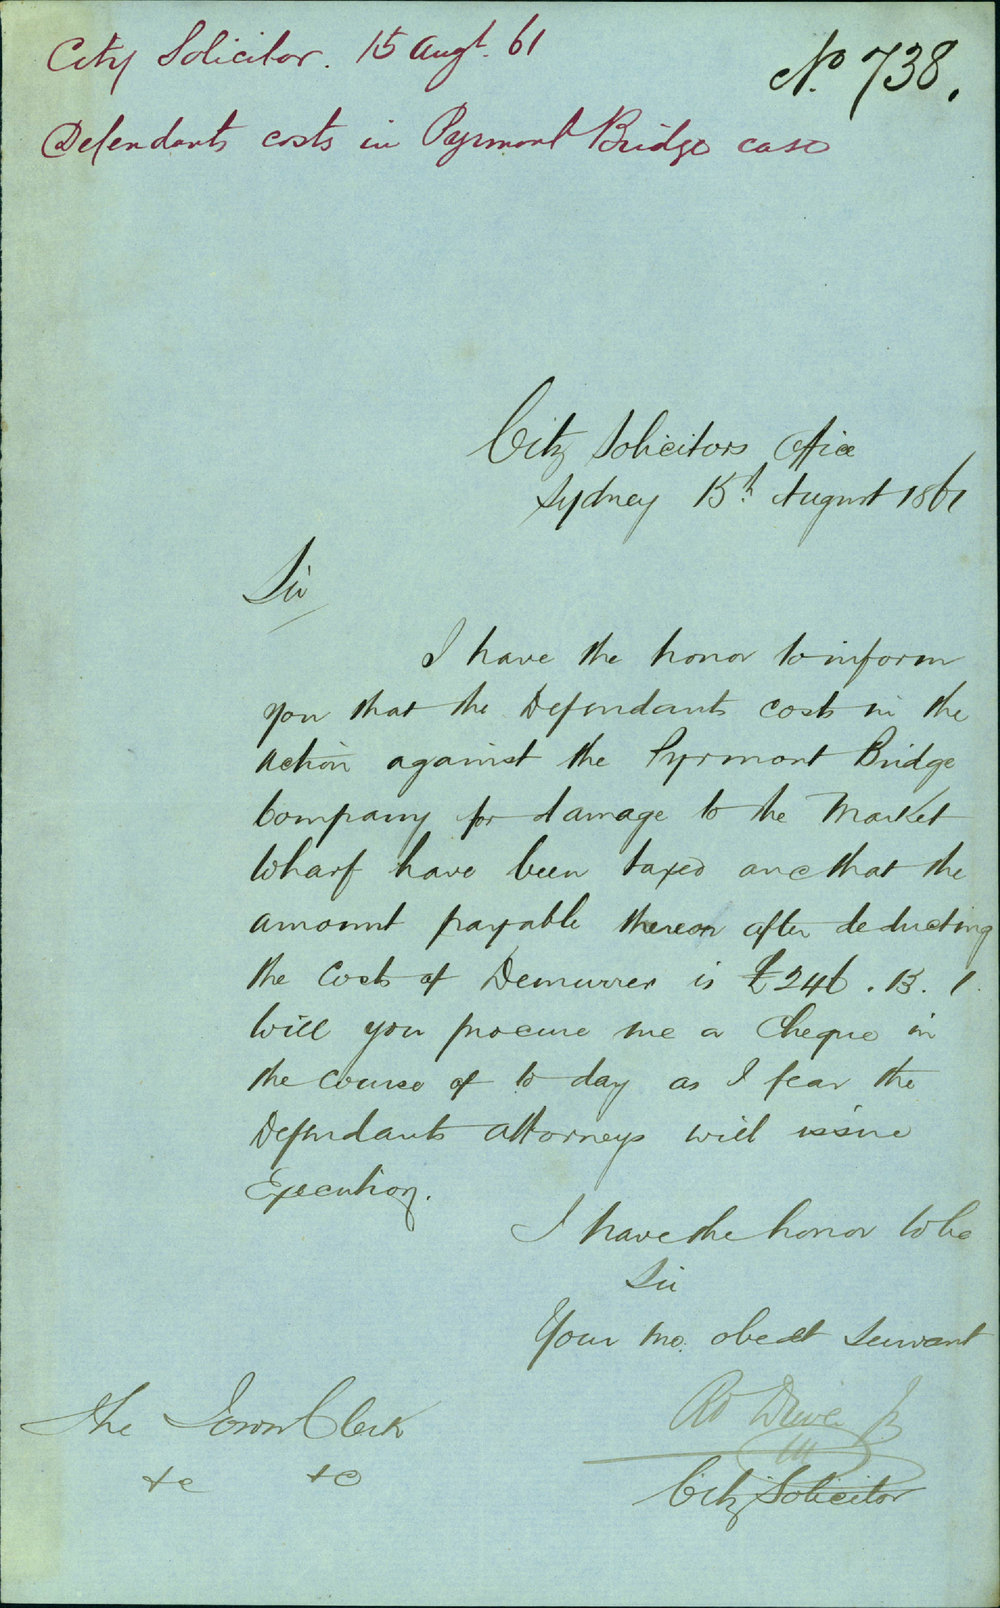 City Solicitor. 15 Augt. 61
No. 738.
Defendants costs in Pyrmont Bridge case
City Solicitors Office
Sydney 15th August 1861
Sir
I have the honor to inform
you that the Defendants costs in the
Action against the Pyrmont Bridge
Company for damage to the Market
Wharf have been taxed and that the
amount payable thereon after deducting
the Costs of Demurrer is £246. 13. 1
Will you procure me a Cheque in
the course of to day as I fear the
Defendants attorneys will issue
Execution.
I have the honor to be
Sir
Your mo. obedt Servant
City Solicitor
The Town Clerk
&c &c